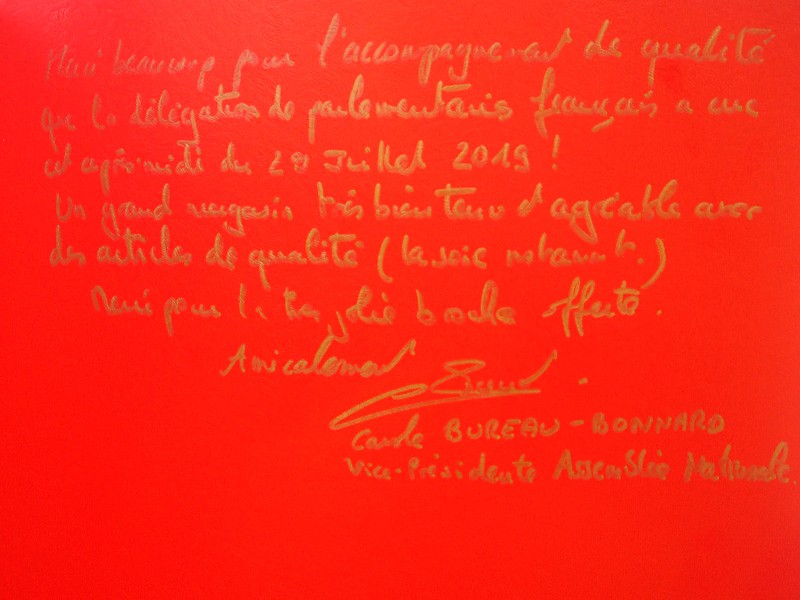 Merci beaucoup pour l'accompagnement de qualité
que la délégation de parlementaires français a eue
cet après-midi du 28 Juillet 2019 !
Un grand magasin très bien tenu et agréable avec
des articles de qualité (la soie notamment.)
Merci pour la très jolie broche offerte.
Amicalement
Carole BUREAU-BONNARD
Vice-Présidente Assemblée Nationale.